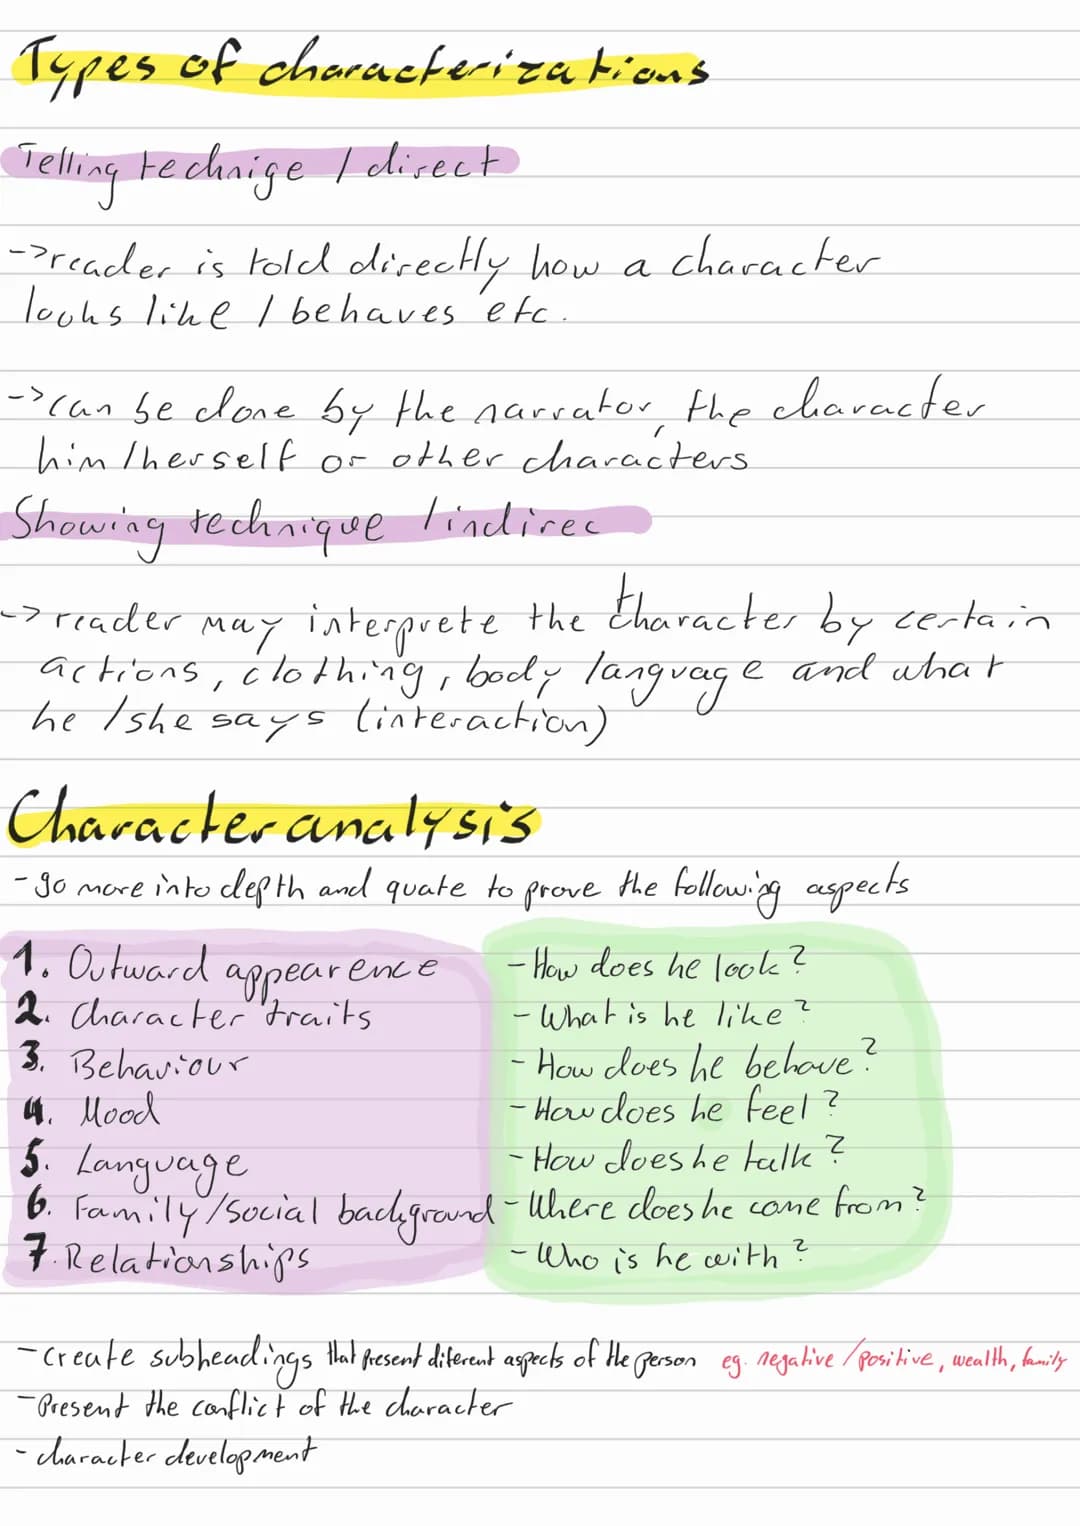 Types of characterizations
Telling technige / direct
->reader is told directly how a character
looks like / behaves etc.
->can be done by the narrator, the character
him/herself or other characters
Showing technique /indirec
-> reader may interprete the character by certain
actions, clothing, body language and what
he /she says (interaction)
Character analysis
- go more into depth and quate to prove the following aspects
1. Outward appearence - How does he look?
2. Character traits - What is he like?
3. Behaviour - How does he behave?
4. Mood - How does he feel?
5. Language - How does he talk?
6. Family/social background - Where does he come from?
7. Relationships - Who is he with?
- create subheadings that present diferent aspects of the person eg. negative/positive, wealth, family
- Present the conflict of the character
- character development